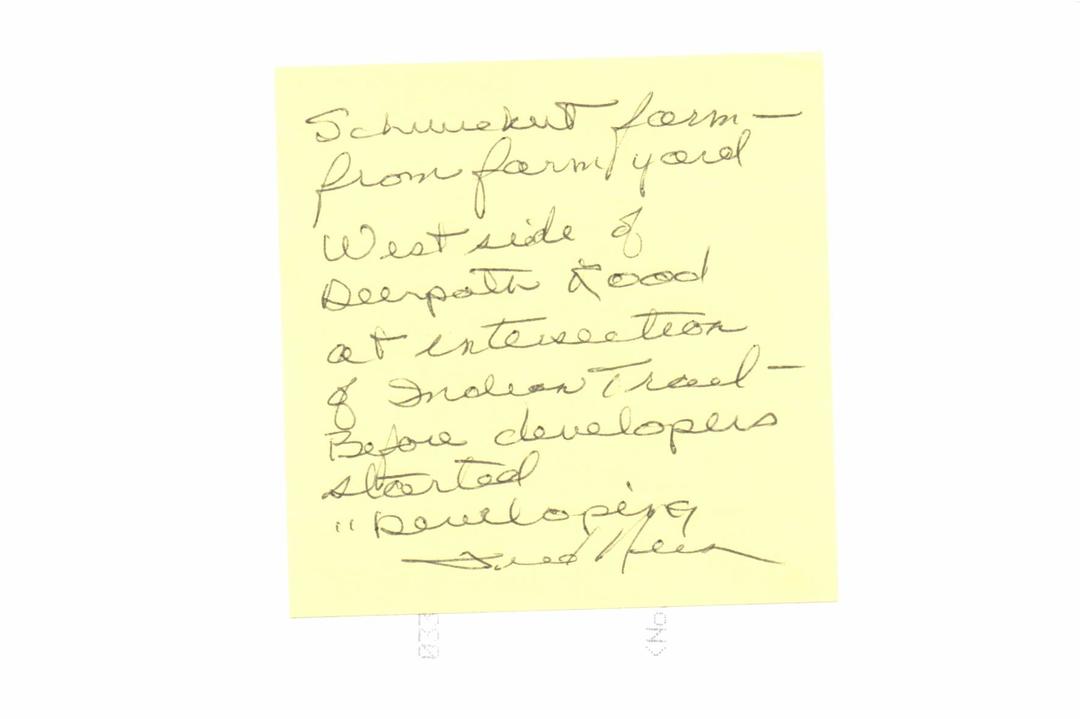 farm —
from farm yard
West side of
Deerpath Road
at intersection
of Indian Trail —
Before developers
started
" Developing
Fred
033
<No